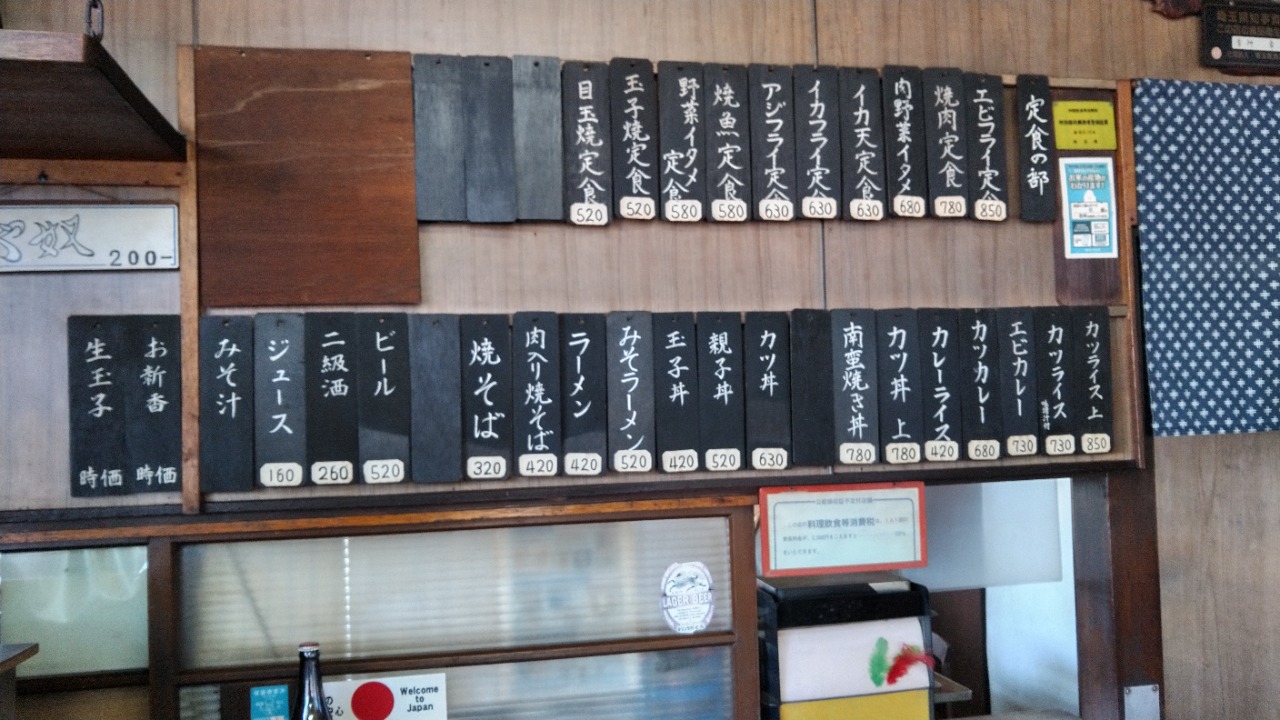 定食の部
エビフライ定食
850
焼肉定食
780
肉野菜イタメ
680
イカ天定食
630
イカフライ定食
630
アジフライ定食
630
焼魚定食
580
野菜イタメ定食
580
玉子焼定食
520
目玉焼定食
520
奴
200-
カツライス 上
850
カツライス
730
エビカレー
730
カツカレー
680
カレーライス
420
カツ丼 上
780
南蛮焼き丼
780
カツ丼
630
親子丼
520
玉子丼
420
みそラーメン
520
ラーメン
420
肉入り焼そば
420
焼そば
320
ビール
520
二級酒
260
ジュース
160
みそ汁
お新香
時価
生玉子
時価
料理飲食等消費税
LAGER BEER
Welcome
to
Japan